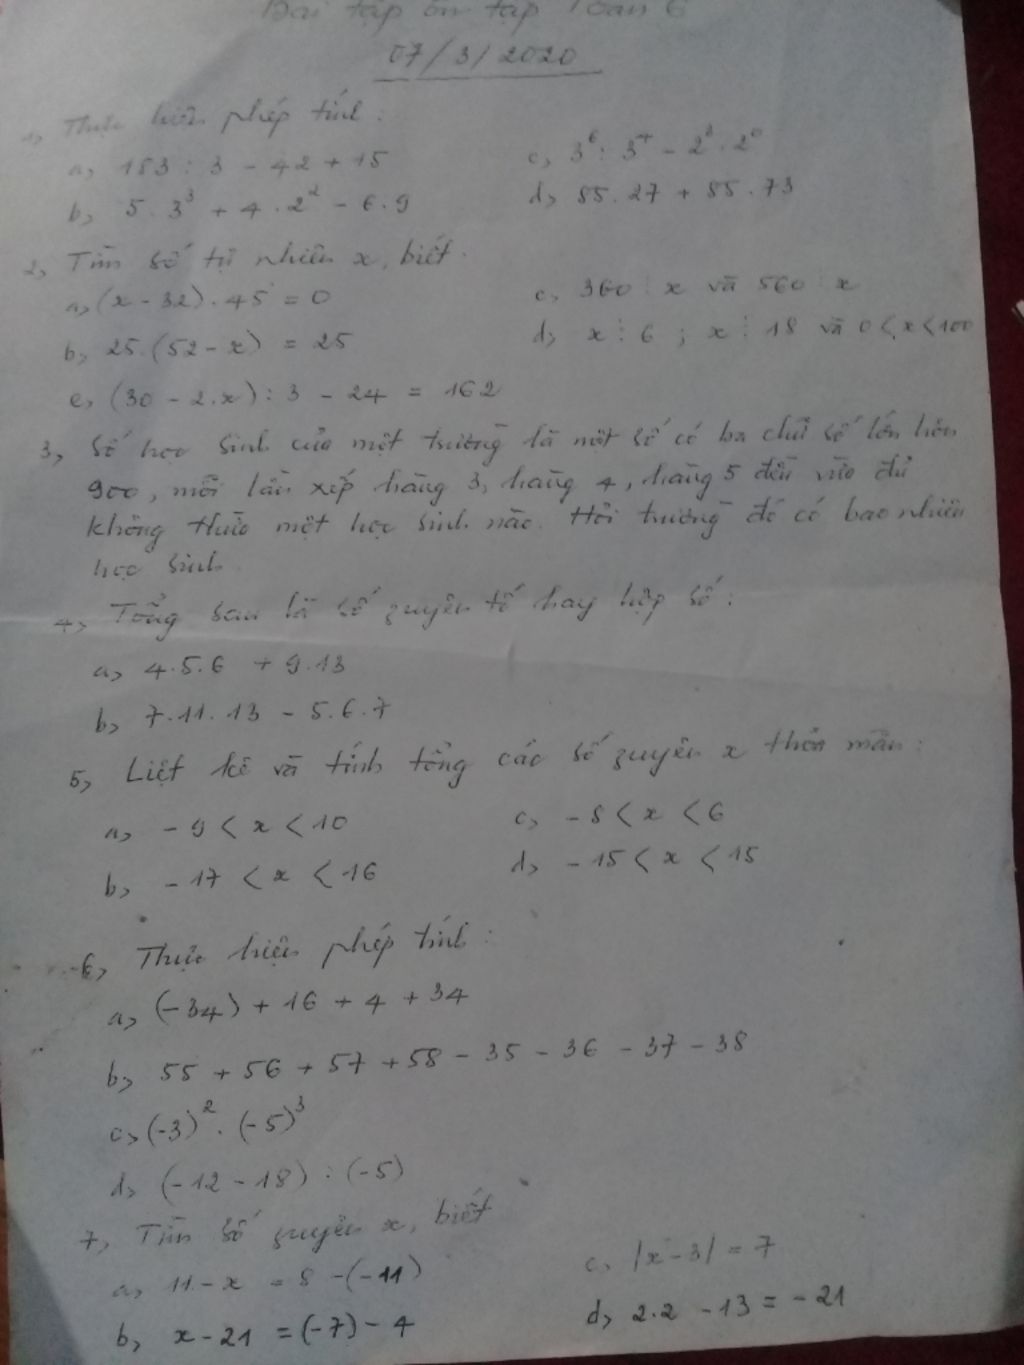 Bài tập ôn tập Toán 6
07/3/2020
1, Thực hiện phép tính :
a, 153 : 3 - 42 + 15
c, 3⁶ : 3⁴ - 2³ . 2⁰
b, 5 . 3³ + 4 . 2² - 6 . 9
d, 85 . 27 + 85 . 73
2, Tìm số tự nhiên x, biết
a, (x - 32) . 45 = 0
c, 360 ⋮ x và 560 ⋮ x
b, 25 . (52 - x) = 25
d, x ⋮ 6 ; x ⋮ 18 và 0 < x < 100
e, (30 - 2.x) : 3 - 24 = 162
3, Số học sinh của một trường là một số có ba chữ số lớn hơn
900, mỗi lần xếp hàng 3, hàng 4, hàng 5 đều vừa đủ
không thừa một học sinh nào. Hỏi trường đó có bao nhiêu
học sinh
4, Tổng sau là số nguyên tố hay hợp số :
a, 4.5.6 + 9.13
b, 7.11.13 - 5.6.7
5, Liệt kê và tính tổng các số nguyên x thỏa mãn :
a, -9 < x < 10
c, -8 < x < 6
b, -17 < x < 16
d, -15 < x < 15
6, Thực hiện phép tính :
a, (-34) + 16 + 4 + 34
b, 55 + 56 + 57 + 58 - 35 - 36 - 37 - 38
c, (-3)² . (-5)³
d, (-12 - 18) : (-5)
7, Tìm số nguyên x, biết
a, 11 - x = 8 - (-11)
c, |x - 3| = 7
b, x - 21 = (-7) - 4
d, 2.2 - 13 = -21